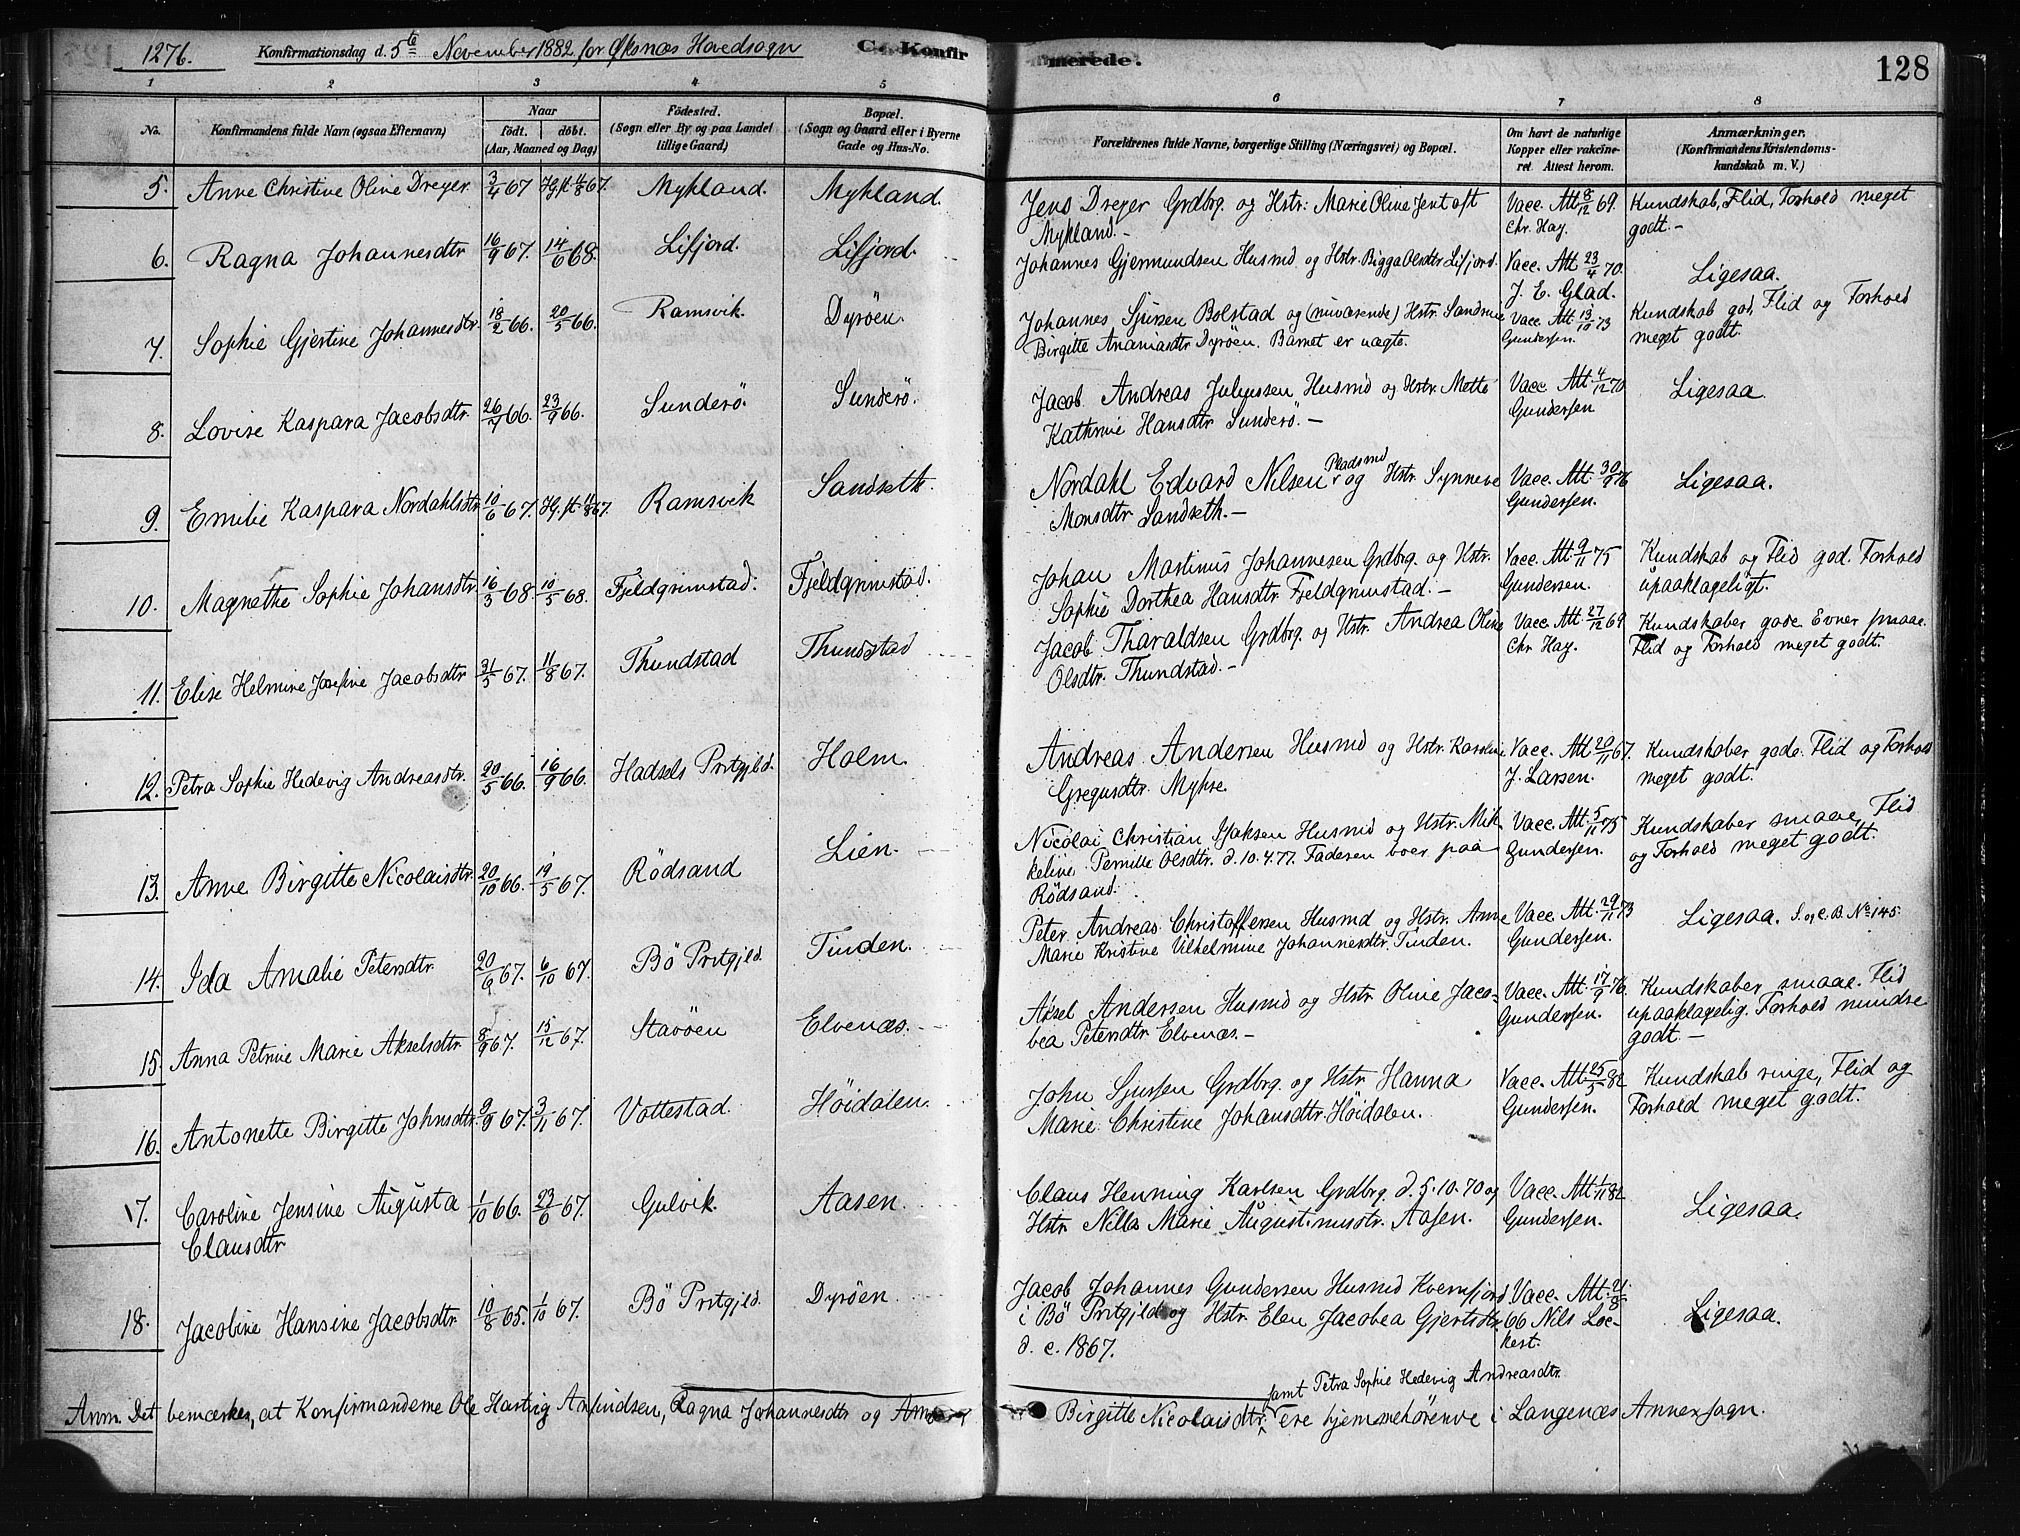 127b. Konfirmationsdag d. 5te November 1882 for Øksnæs Hovedsogn C. Konfirmerede. 128
1 2 3 4 5 6 7 8
No. Konfirmandens fulde Navn (ogsaa Efternavn) Naar födt. döbt. (Aar, Maaned og Dag) Födested. (Sogn eller By og paa Landet tillige Gaard) Bopæl. (Sogn og Gaard eller i Byerne Gade og Hus-No. Forældrenes fulde Navne, borgerlige Stilling (Næringsvei) og Bopæl. Om havt de naturlige Kopper eller vakcineret. Attest herom. Anmærkninger. (Konfirmandens Kristendomskundskab m. V.)
5. Anne Christine Oline Dreyer 3/4 67 Hj.d. 4/8 67. Mykland. Mykland. Jens Dreyer Grdbrg. og Hstr: Marie Oline Jentoft Mykland.- Vacc. Att 8/12 69. Chr. Hay. Kundskab, Flid, Forhold meget godt.-
6. Ragna Johannesdtr 16/9 67. 14/6 68. Lifjord. Lifjord. Johannes Gjermundsen Husmd og Hstr. Bigga Olsdtr Lifjord. Vacc. Att 23/4 70. J. E. Glad. Ligesaa.
7. Sophie Gjertine Johannesdtr. 18/2 66. 20/5 66. Ramsvik. Dyröen. Johannes Sjursen Bolstad og (nuværende) Hstr. Sandrine Birgitte Ananiasdtr Dyröen. Barnet er uægte. Vacc. Att 13/10 73 Gundersen. Kundskab god, Flid og Forhold meget godt.
8. Lovise Kaspara Jacobsdtr. 26/7 66. 23/9 66. Sunderö. Sunderö. Jacob Andreas Juliussen Husmd og Hstr. Mette Kathrine Hansdtr Sunderö.- Vacc. Att 4/12 70 Gundersen Ligesaa.
9. Emilie Kaspara Nordahlsdtr 10/6 67. Hj.d. 11/8 67. Ramsvik Sandseth. Nordahl Edvard Nilsen Pladsmd og Hstr. Synneve Monsdtr Sandseth.- Vacc. Att. 30/8 76 Gundersen. Ligesaa.
10. Magnethe Sophie Johansdtr. 16/3 68. 10/5 68. Fjeldgrimstad. Fjeldgrimstad. Johan Martinus Johannesen Grdbrg. og Hstr. Sophie Dorthea Hansdtr Fjeldgrimstad.- Vacc. Att. 9/11 75 Gundersen. Kundskab og Flid god. Forhold upaaklageligt.
11. Elise Helmine Josefine Jacobsdtr 31/5 67. 11/8 67. Thundstad Thundstad Jacob Tharaldsen Grdbrg. og Hstr. Andrea Oline Olsdtr. Thundstad.- Vacc. Att 27/12 69 Chr Hay. Kundskaber gode Evner smaae. Flid og Forhold meget godt.
12. Petra Sophie Hedevig Andreasdtr. 20/5 66. 16/9 66. Hadsels Prstgjld. Holm. Andreas Andersen Husmd og Hstr. Karoline Gregusdtr. Myhre. Vacc. Att 20/11 67. J. Larsen. Kundskaber gode. Flid og Forhold meget godt.
13. Anne Birgitte Nicolaisdtr. 20/10 66. 19/5 67. Rödsand Lien. Nicolai Christian Isaksen Husmd og Hstr. Mikkeline Pernille Olsdtr. d. 10.4.77. Faderen boer paa Rödsand. Vacc. Att. 5/11 75 Gundersen. Kundskaber smaae, Flid og Forhold meget godt.
14. Ida Amalie Petersdtr. 20/6 67. 6/10 67. Bö Prstgjld. Tinden. Peter Andreas Christoffersen Husmd og Hstr. Anne Marie Kristine Vilhelmine Johannesdtr. Tinden. Vacc. Att. 29/11 73 Gundersen. Ligesaa. S. og C. B. No 145.
15. Anna Petrine Marie Akselsdtr. 8/9 67. 15/12 67. Stavöen Elvenæs. Aksel Andersen Husmd og Hstr Oline Jacobea Petersdtr Elvenæs.- Vacc. Att. 17/9 76. Gundersen. Kundskaber smaae. Flid upaaklagelig. Forhold mindre godt.-
16. Antonette Birgitte Johnsdtr. 9/9 67. 3/11 67. Vottestad. Höidalen. John Sjursen Grdbrg. og Hstr Hanna Marie Christine Johansdtr. Höidalen. Vacc. Att. 25/5 82 Gundersen. Kundskab ringe, Flid og Forhold meget godt.
17. Caroline Jensine Augusta Clausdtr. 1/10 66. 23/6 67. Gulvik. Aasen. Claus Henning Karlsen Grdbrg. d. 5.10.70 og Hstr Nilla Marie Augustinusdtr. Aasen. Vacc. Att. 1/11 82 Gundersen. Ligesaa.
18. Jacobine Hansine Jacobsdtr. 10/8 65. 1/10 67. Bö Prstgjld. Dyröen. Jacob Johannes Gundersen Husmd Kvernfjord i Bö Prstgjld og Hstr Elen Jacobea Gjertsdtr d. c. 1867. Vacc. Att. 21/8 66 Nils Lockert. Ligesaa.
Anm. Det bemærkes, at Konfirmanderne Ole Hartvig Amundsen, Ragna Johannesdtr og Anne Birgitte Nicolaisdtr. samt Petra Sophie Hedevig Andreasdtr. ere hjemmehörende i Langenæs Annexsogn.